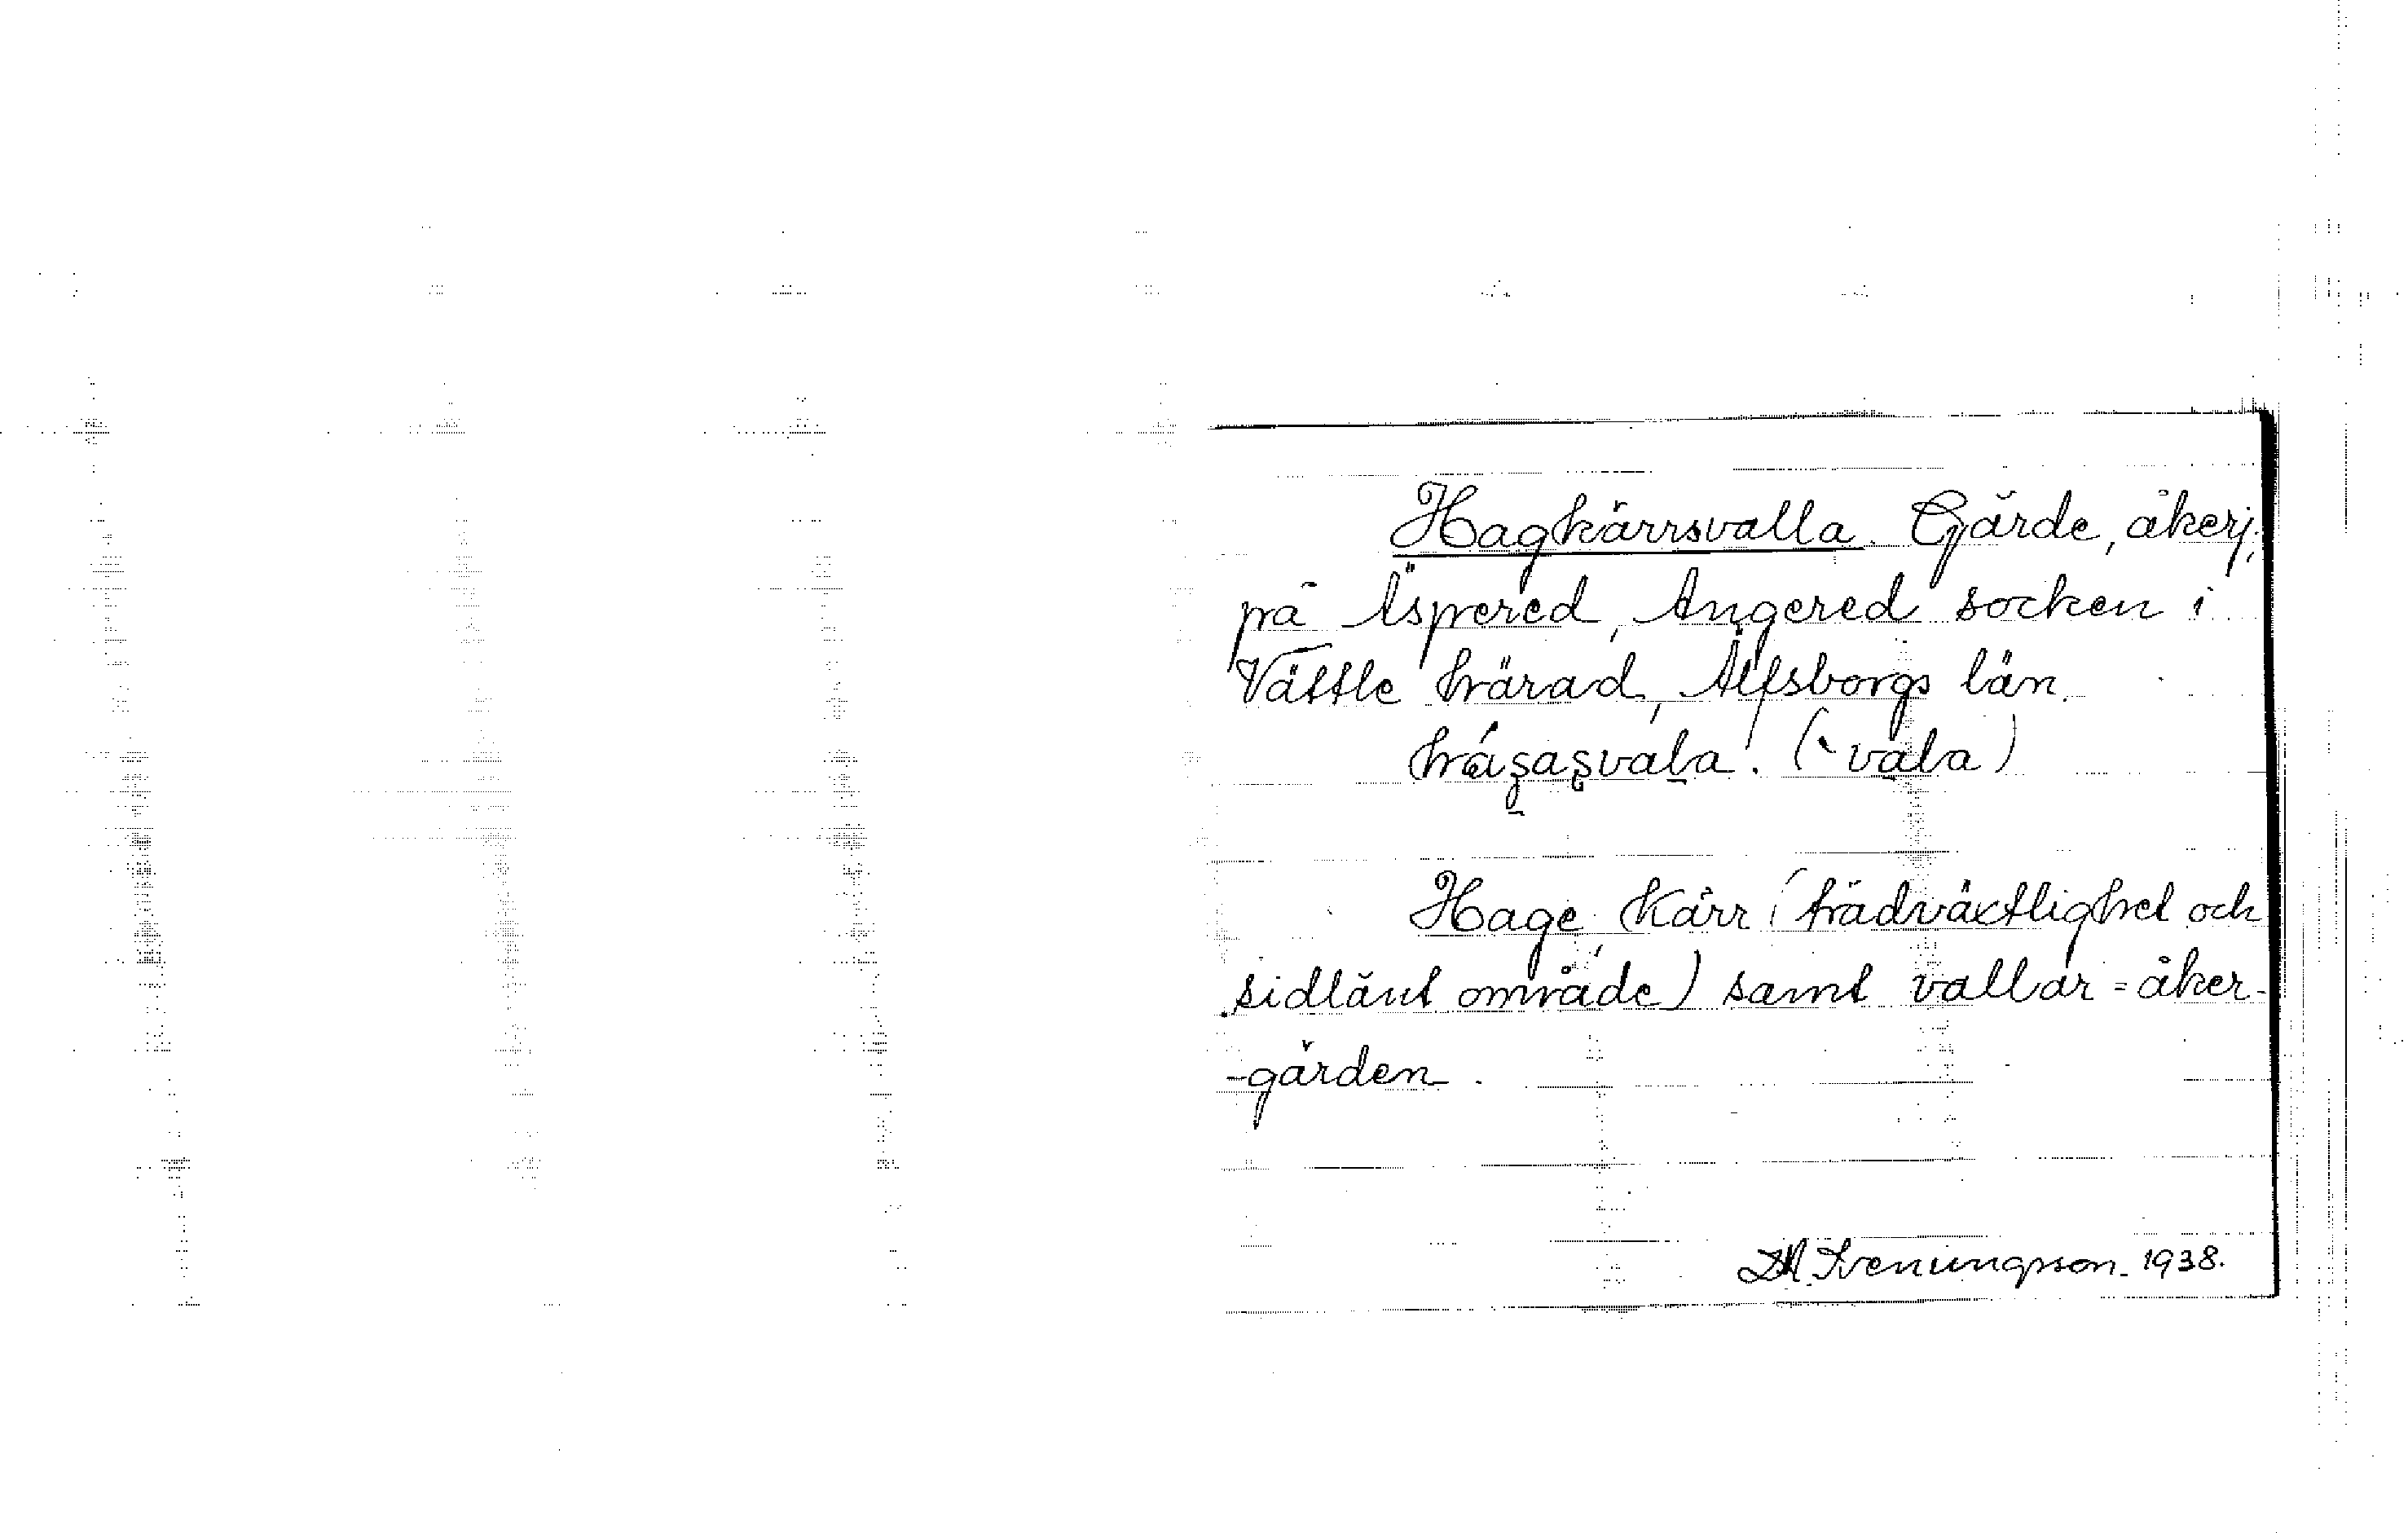 Hagkärrsvalla. Gärde, åkerj.,
på Äspered, Angered socken i
Vättle härad, Älfsborgs län.
(ˋvala)
Hage, Kärr (trädväxtlighet och
sidlänt område) samt vallar = åker-
-gärden.
Svenungsson. 1938.